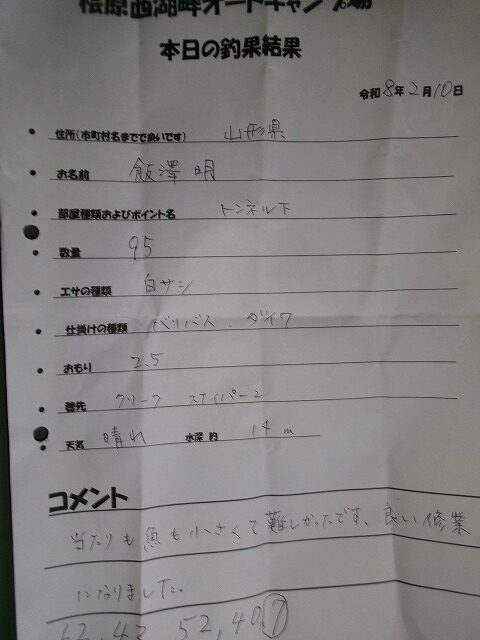 桧原西湖畔オートキャンプ場
本日の釣果結果
令和 8年 2月 10日
住所(市町村名までで良いです) 山形県
お名前 飯澤 明
部屋種類およびポイント名 トンネル下
数量 95
エサの種類 白サシ
仕掛けの種類 バリバス、ダイワ
おもり 2.5
穂先 クリーフ スナイパー2
天気 晴れ 水深 約 14 m
コメント
当たりも魚も小さくて難しかったです、良い修業
になりました。
62, 42, 52, 40, 7